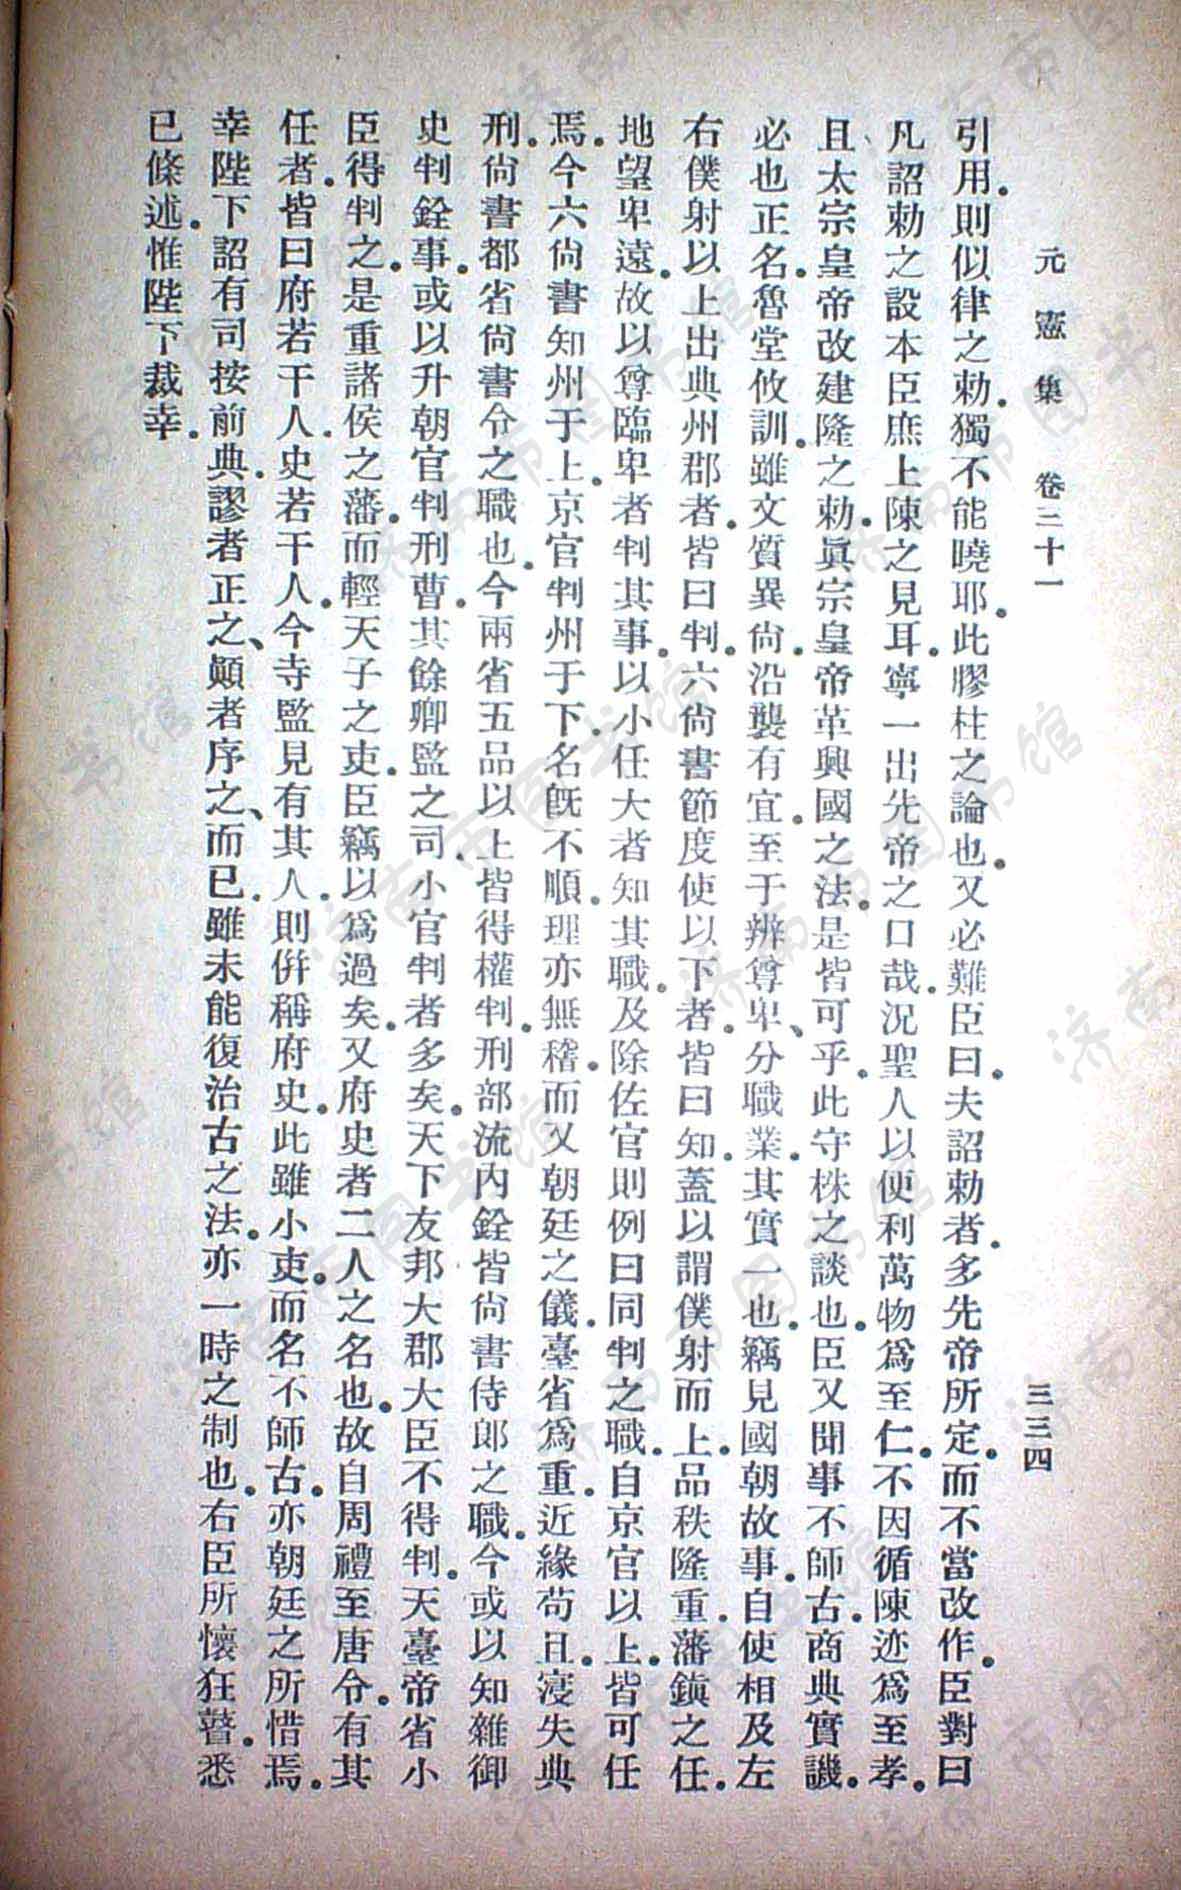 元憲集　卷三十一　三三四
引用。則似律之勅。獨不能曉耶。此膠柱之論也。又必難臣曰。夫詔勅者。多先帝所定。而不當改作。臣對曰
凡詔勅之設。本臣庶上陳之見耳。寧一出先帝之口哉。況聖人以便利萬物爲至仁。不因循陳迹爲至孝。
且太宗皇帝改建隆之勅。眞宗皇帝革興國之法。是皆可乎。此守株之談也。臣又聞事不師古。商典實譏。
必也正名。魯堂攸訓。雖文質異尙。沿襲有宜。至于辨尊卑、分職業。其實一也。竊見國朝故事。自使相及左
右僕射以上出典州郡者。皆曰判。六尙書節度使以下者。皆曰知。蓋以謂僕射而上。品秩隆重。藩鎭之任。
地望卑遠。故以尊臨卑者判其事。以小任大者知其職。及除佐官則例曰同判之職。自京官以上。皆可任
焉。今六尙書知州于上。京官判州于下。名旣不順。理亦無稽。而又朝廷之儀。臺省爲重。近緣苟且。寖失典
刑。尙書都省尙書令之職也。今兩省五品以上。皆得權判。刑部流內銓。皆尙書侍郞之職。今或以知雜御
史判銓事。或以升朝官判刑曹。其餘卿監之司。小官判者多矣。天下友邦大郡。大臣不得判。天臺帝省小
臣得判之。是重諸侯之藩。而輕天子之吏。臣竊以爲過矣。又府史者。二人之名也。故自周禮至唐令。有其
任者。皆曰府若干人。史若干人。今寺監見有其人。則併稱府史。此雖小吏。而名不師古。亦朝廷之所惜焉。
幸陛下詔有司按前典。謬者正之、顚者序之、而已。雖未能復治古之法。亦一時之制也。右臣所懷狂瞽。悉
已條述。惟陛下裁幸。